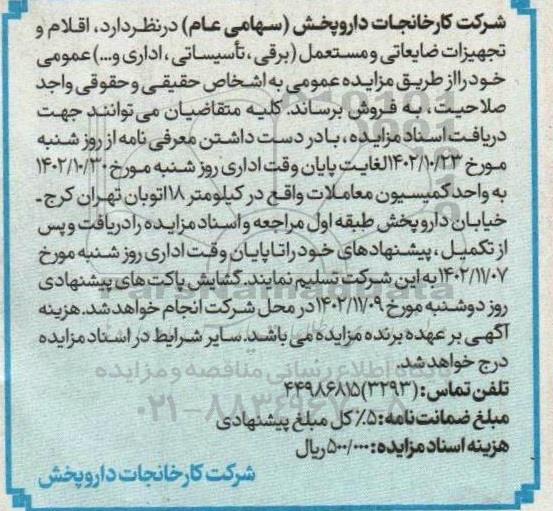 شرکت کارخانجات داروپخش (سهامی عام) درنظردارد، اقلام و
تجهیزات ضایعاتی ومستعمل (برقی، تأسیساتی، اداری و...) عمومی
خود را از طریق مزایده عمومی به اشخاص حقیقی وحقوقی واجد
صلاحیت، به فروش برساند. کلیه متقاضیان می توانند جهت
دریافت اسناد مزایده، بادر دست داشتن معرفی نامه از روز شنبه
مورخ ۱۴۰۲/۱۰/۲۳ لغایت پایان وقت اداری روز شنبه مورخ ۱۴۰۲/۱۰/۳۰
به واحد کمیسیون معاملات واقع در کیلومتر ۱۸ اتوبان تهران کرج ـ
خیابان داروپخش طبقه اول مراجعه و اسناد مزایده را دریافت و پس
از تکمیل، پیشنهادهای خود را تا پایان وقت اداری روز شنبه مورخ
۱۴۰۲/۱۱/۰۷ به این شرکت تسلیم نمایند. گشایش پاکت های پیشنهادی
روز دوشنبه مورخ ۱۴۰۲/۱۱/۰۹ در محل شرکت انجام خواهد شد. هزینه
آگهی بر عهده برنده مزایده می باشد. سایر شرایط در اسناد مزایده
درج خواهد شد.
پایگاه اطلاع رسانی مناقصه و مزایده
تلفن تماس: (۳۲۹۳) ۴۴۹۸۶۸۱۵
مبلغ ضمانت نامه: ۵٪ کل مبلغ پیشنهادی
هزینه اسناد مزایده: ۵۰۰/۰۰۰ ریال
شرکت کارخانجات داروپخش